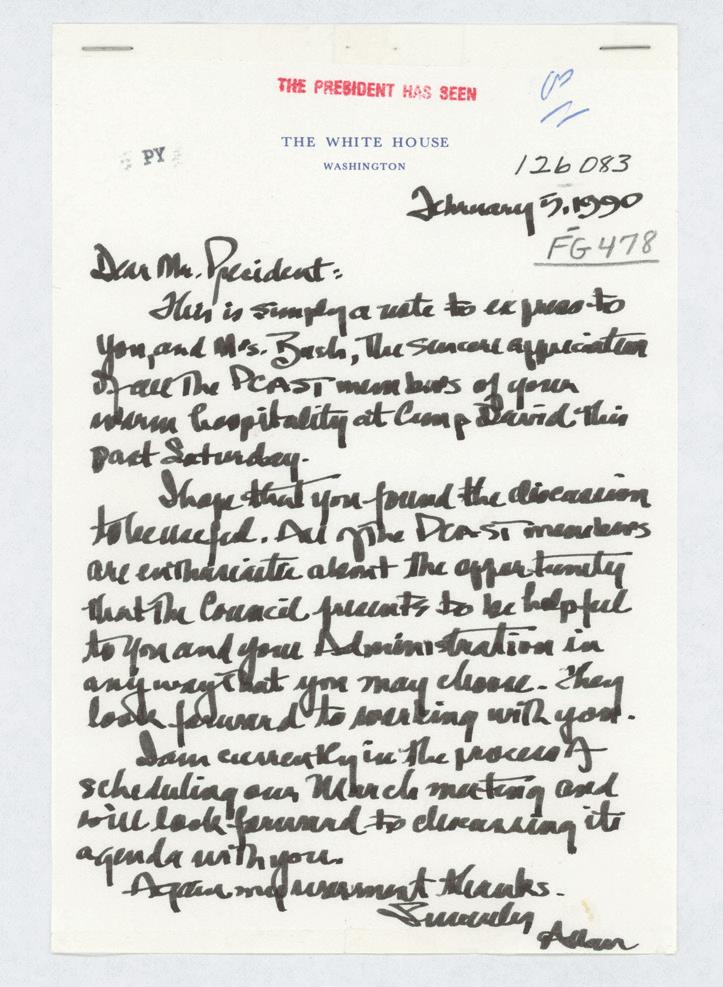 THE PRESIDENT HAS SEEN
THE WHITE HOUSE
PY
WASHINGTON
126083
February 5, 1990
FG478
Dear Mr. President:
This is simply a note to express to
you, and Mrs. Bush, the sincere appreciation
of all the PCAST members of your
warm hospitality at Camp David this
past Saturday.
I hope that you found the discussion
to be useful. All of the PCAST members
are enthusiastic about the opportunity
that the Council presents to be helpful
to you and your Administration in
any way that you may choose. They
look forward to working with you.
I am currently in the process of
scheduling our March meeting and
will look forward to discussing its
agenda with you.
Again my warmest thanks.
Sincerely
Allan